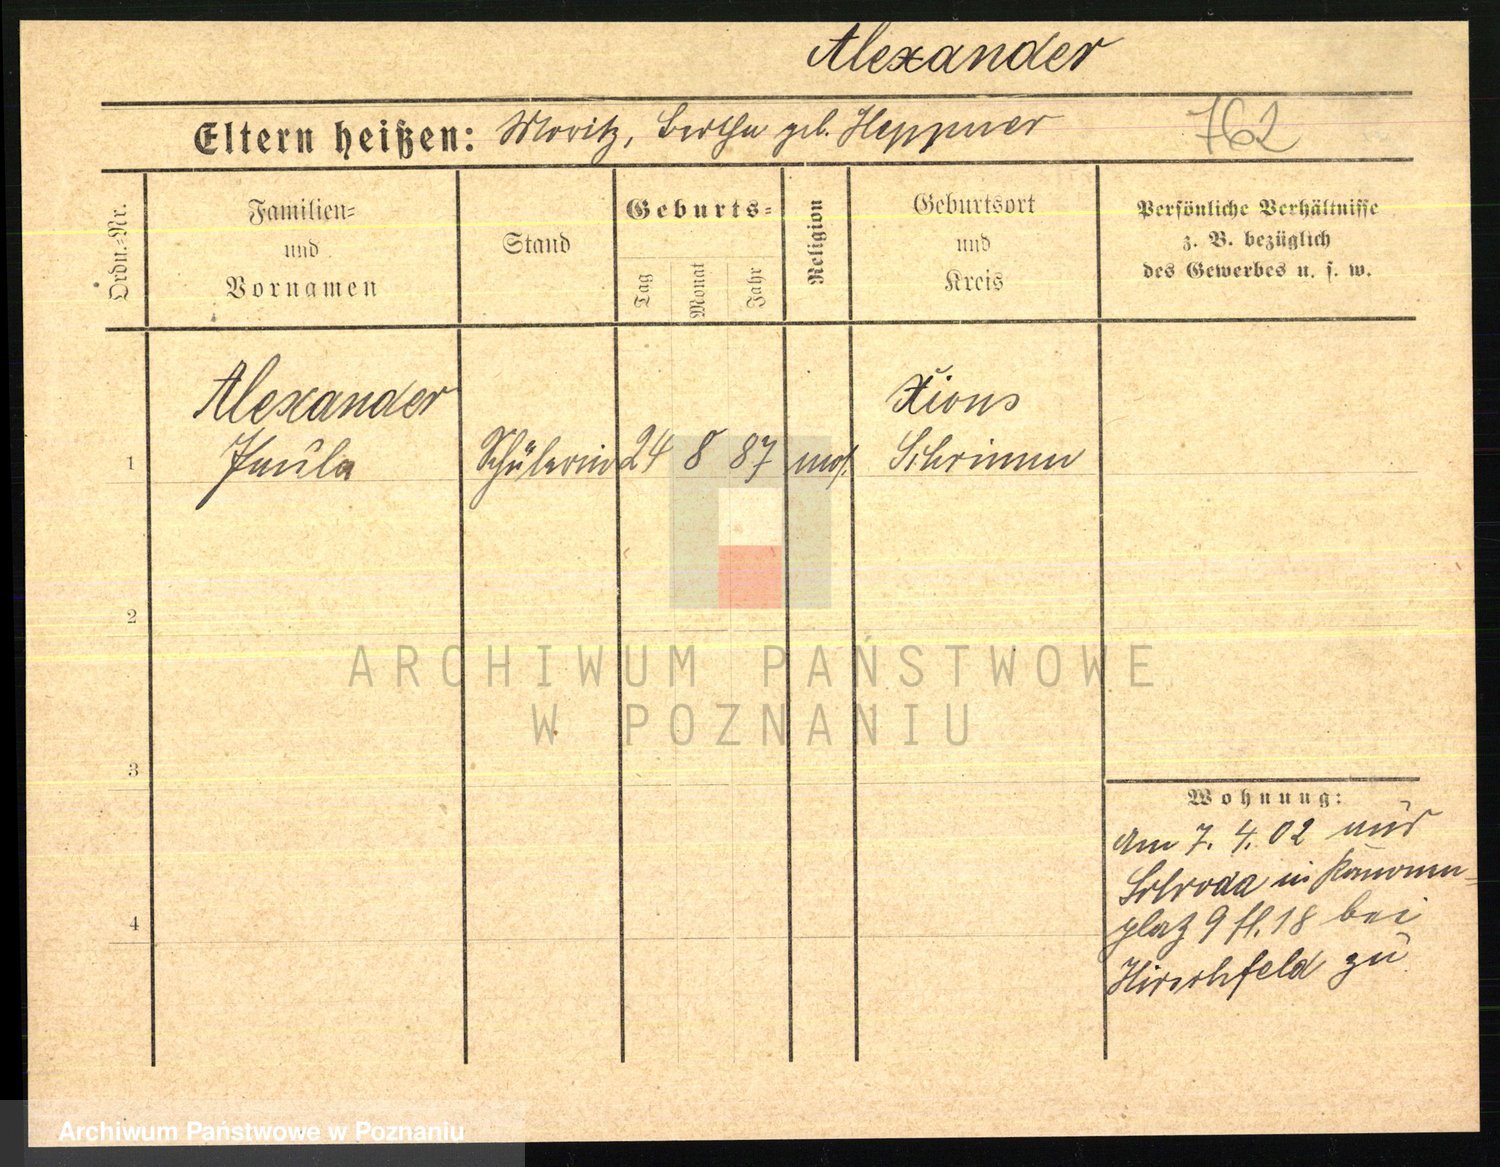 Alexander
Eltern heißen: Moritz, Bertha geb. Heppner 762
Ordn.-Nr.
Familien-
und
Vornamen
Stand
Geburts-
Tag
Monat
Jahr
Religion
Geburtsort
und
Kreis
Persönliche Verhältnisse
z. B. bezüglich
des Gewerbes u. s. w.
Alexander
Xions
1 Paula Schülerin 24 8 87 mos. Schrimm
2
ARCHIWUM PAŃSTWOWE
W POZNANIU
3
Wohnung:
Am 7. 4. 02 aus
Schroda in Kanonen-
4
platz 9 fl. 18 bei
Hirschfeld zu
Archiwum Państwowe w Poznaniu